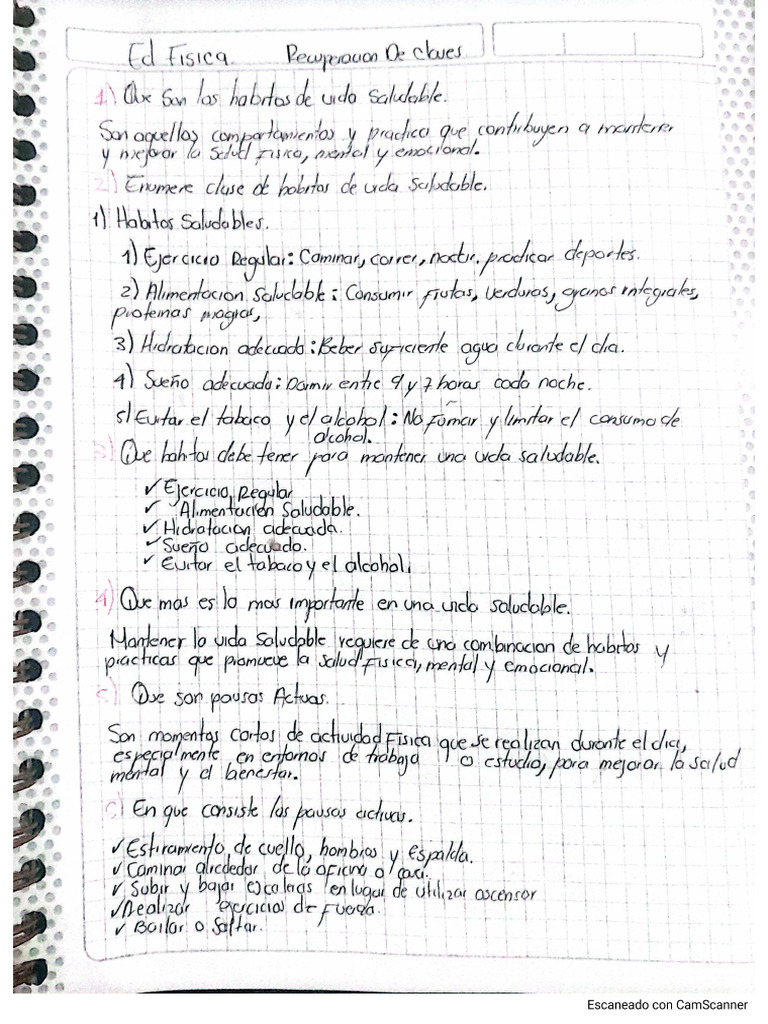 Ed Fisica. Recuperacion De Claves
1) Que Son los habitos de vida Saludable.
Son aquellos comportamientos y practica que contribuyen a mantener
y mejorar la Salud Fisica, mental y emocional.
2) Enumere clase de habitos de vida Saludable.
1) Habitos Saludables.
1) Ejercicio Regular: Caminar, correr, nadar. practicar deportes.
2) Alimentacion Saludable: Consumir Frutas, verduras, granos integrales,
proteinas magras,
3) Hidratacion adecuada: Beber Suficiente agua durante el dia.
4) Sueño adecuado: Dormir entre 9 y 7 horas cada noche.
5) Evitar el tabaco y el alcohol: No Fumar y limitar el consumo de
alcohol.
3) Que habitos debe tener para mantener una vida saludable.
✓ Ejercicio Regular
✓ Alimentacion Saludable.
✓ Hidratacion adecuada.
✓ Sueño adecuado.
✓ Evitar el tabaco y el alcohol.
4) Que mas es lo mas importante en una vida saludable.
Mantener la vida Saludable requiere de una combinacion de habitos y
practicas que promueve la salud Fisica, mental y emocional.
5) Que son pausas Activas.
Son momentos cortos de actividad Fisica que se realizan durante el dia,
especialmente en entornos de trabajo o estudio, para mejorar la salud
mental y el bienestar.
6) En que consiste las pausas activas.
✓ Estiramiento de cuello, hombros y espalda.
✓ Caminar alrededor de la oficina o casa.
✓ Subir y bajar escaleras en lugar de utilizar ascensor
✓ Realizar ejercicios de Fuerza.
✓ Bailar o Saltar.
Escaneado con CamScanner